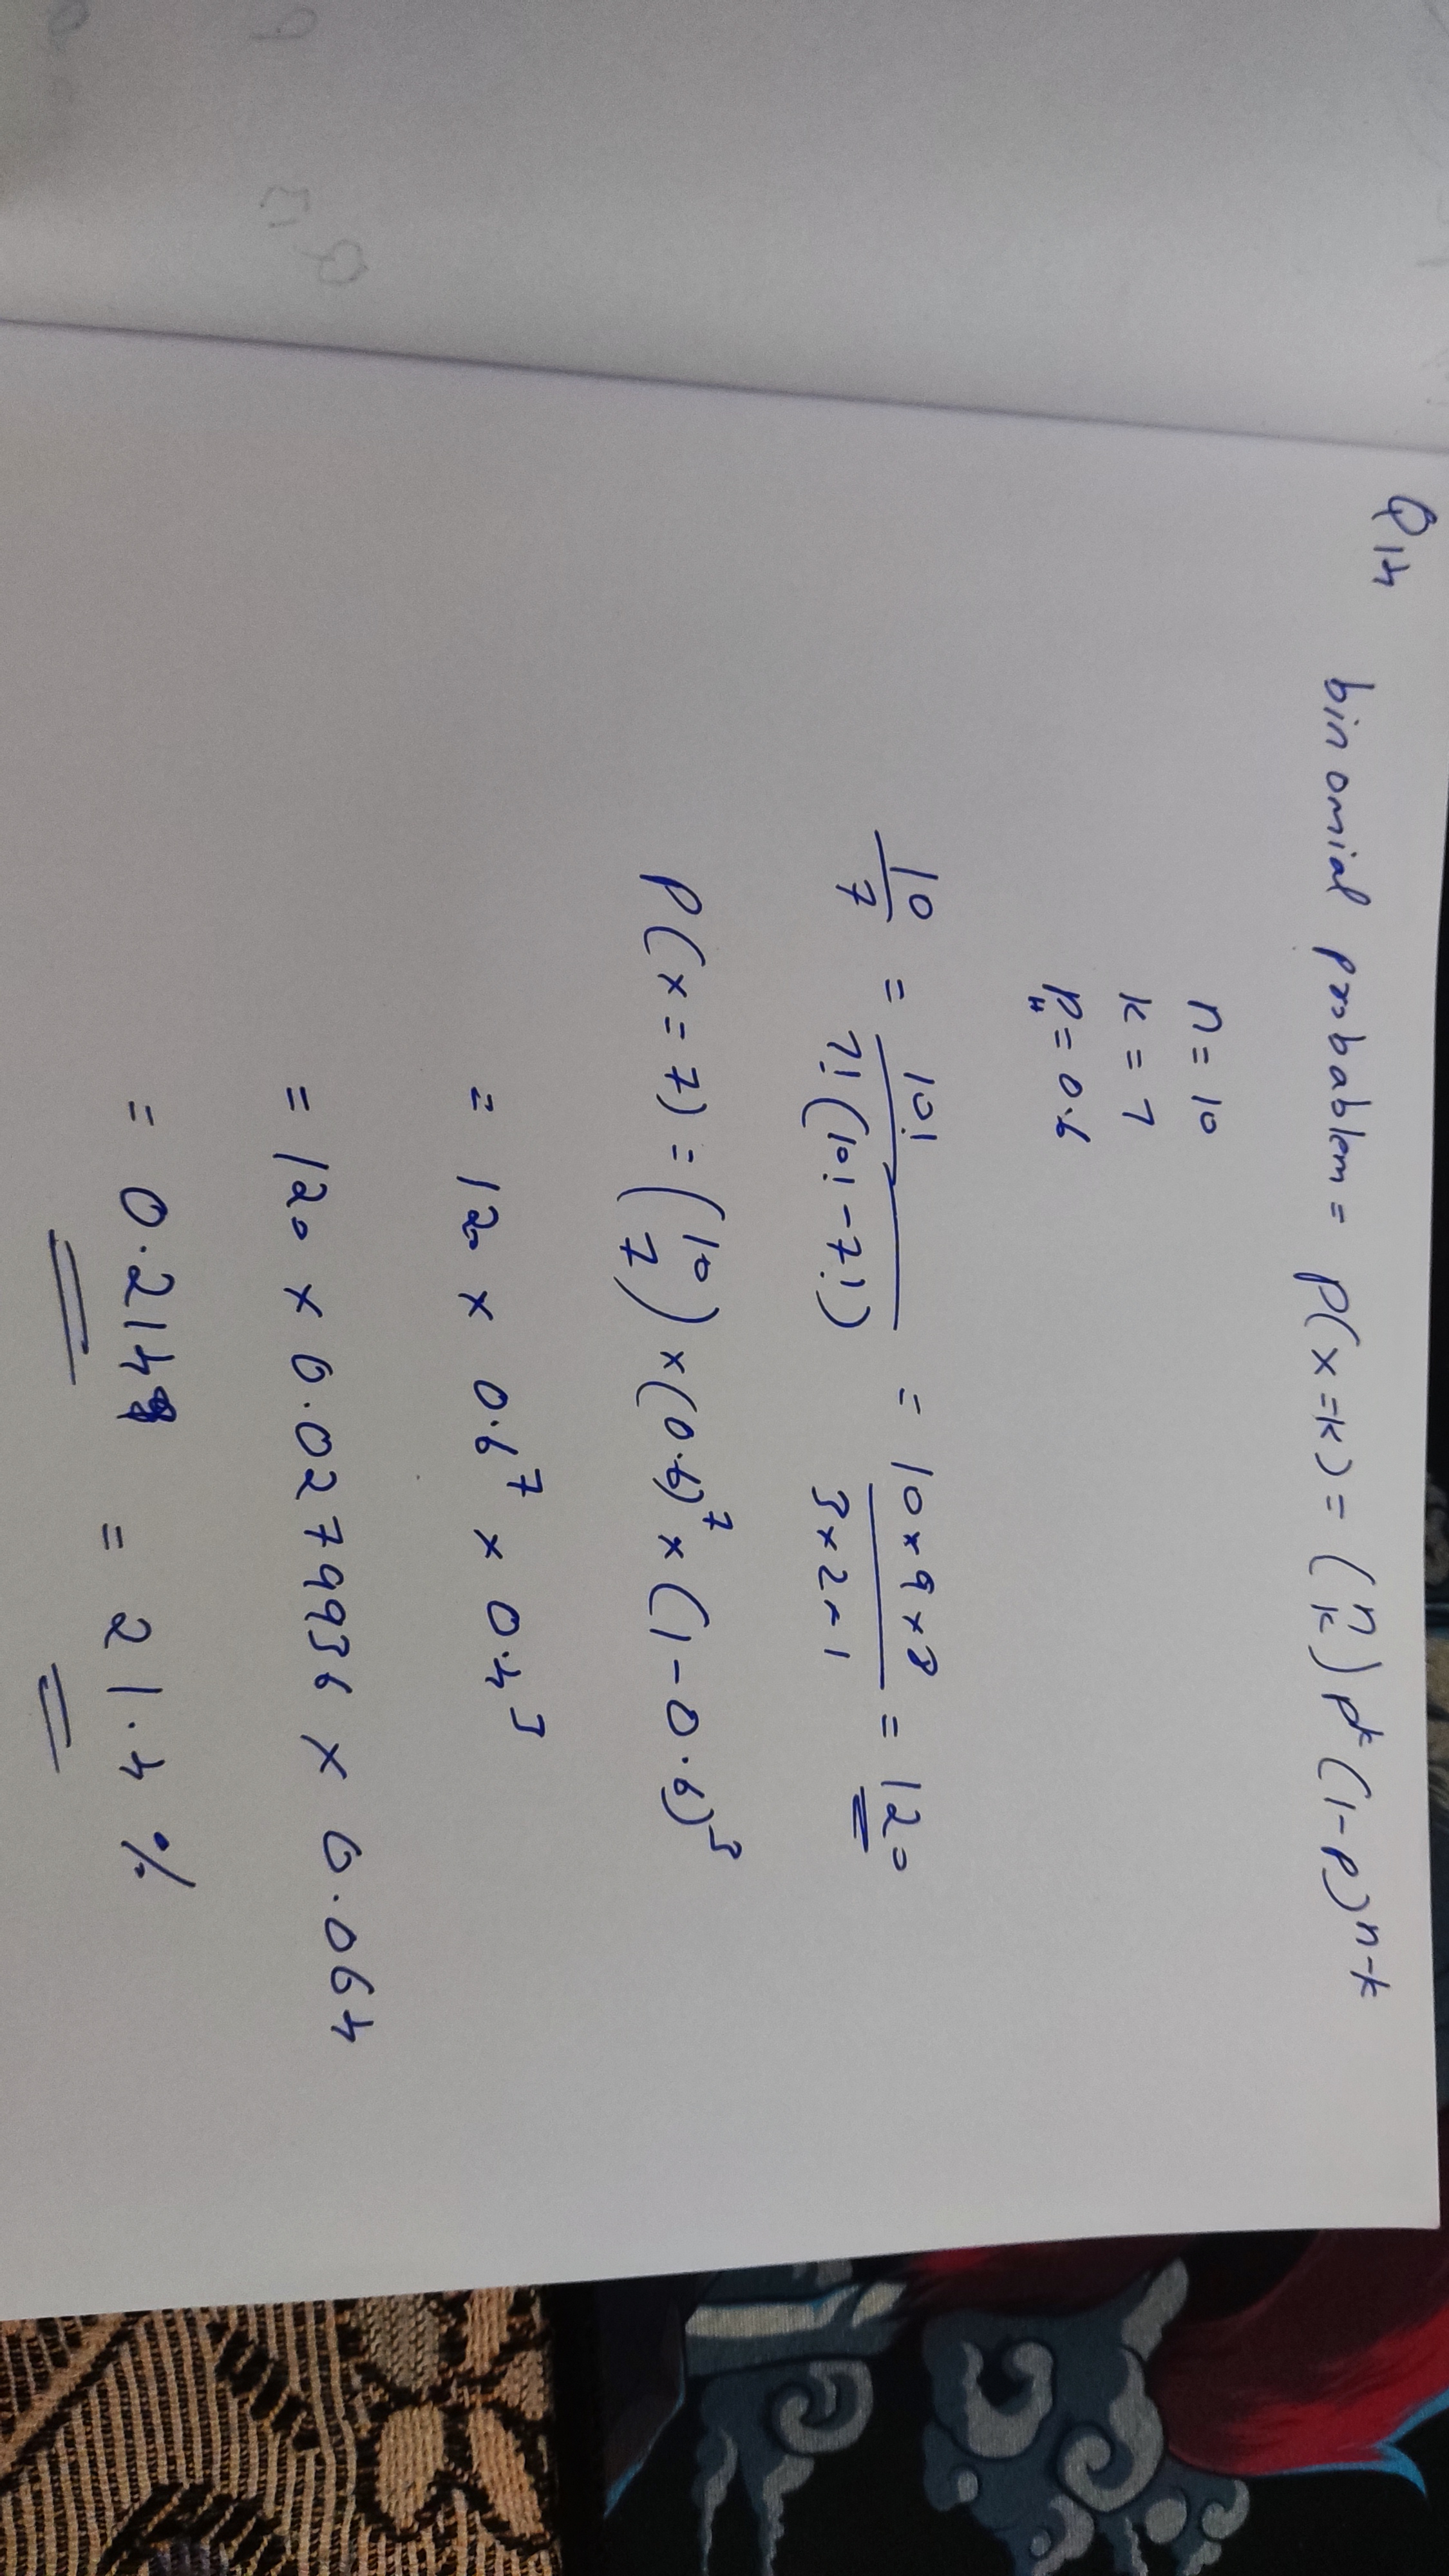 Q14
binomial probablem = P(x=k) = (n k) p^k (1-p)^n-k
n = 10
k = 7
P_H = 0.6
10/7 = 10!/7!(10!-7!) = 10×9×8/3×2×1 = 120
P(x=7) = (10 7) × (0.6)^7 × (1-0.6)^3
= 120 × 0.6^7 × 0.4^3
= 120 × 0.0279936 × 0.064
= 0.214 = 21.4 %
Q13
P